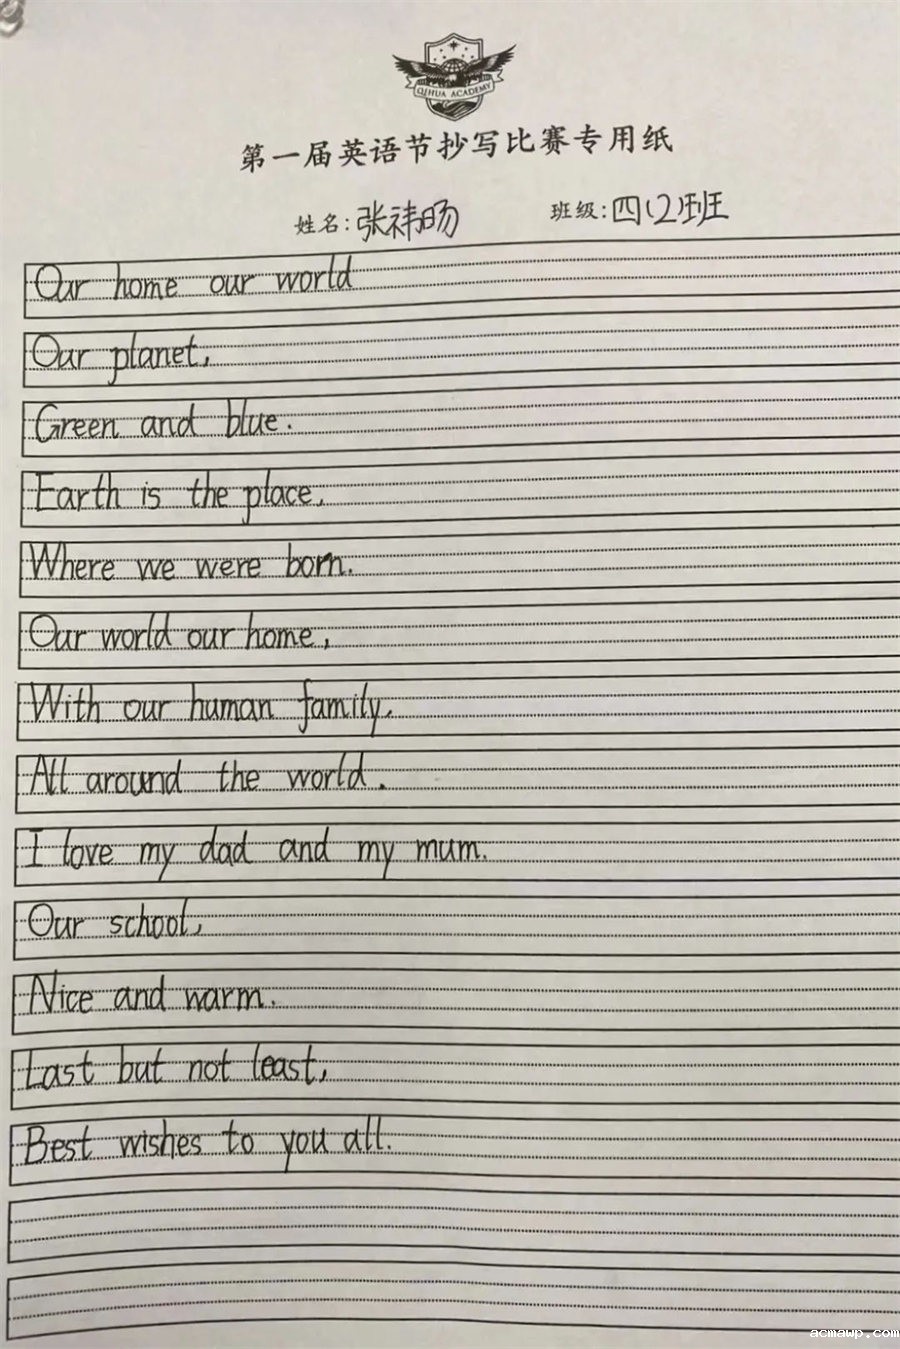 QIHUA ACADEMY
第一届英语节抄写比赛专用纸
姓名:张祎旸 班级:四(2)班
Our home our world
Our planet,
Green and blue.
Earth is the place,
Where we were born.
Our world our home,
With our human family,
All around the world.
I love my dad and my mum.
Our school,
Nice and warm.
Last but not least,
Best wishes to you all.
acmawp.com